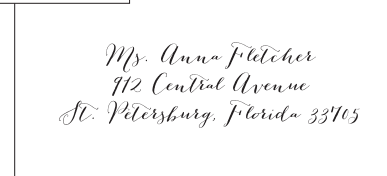 Ms. Anna Fletcher
912 Central Avenue
St. Petersburg, Florida 33705